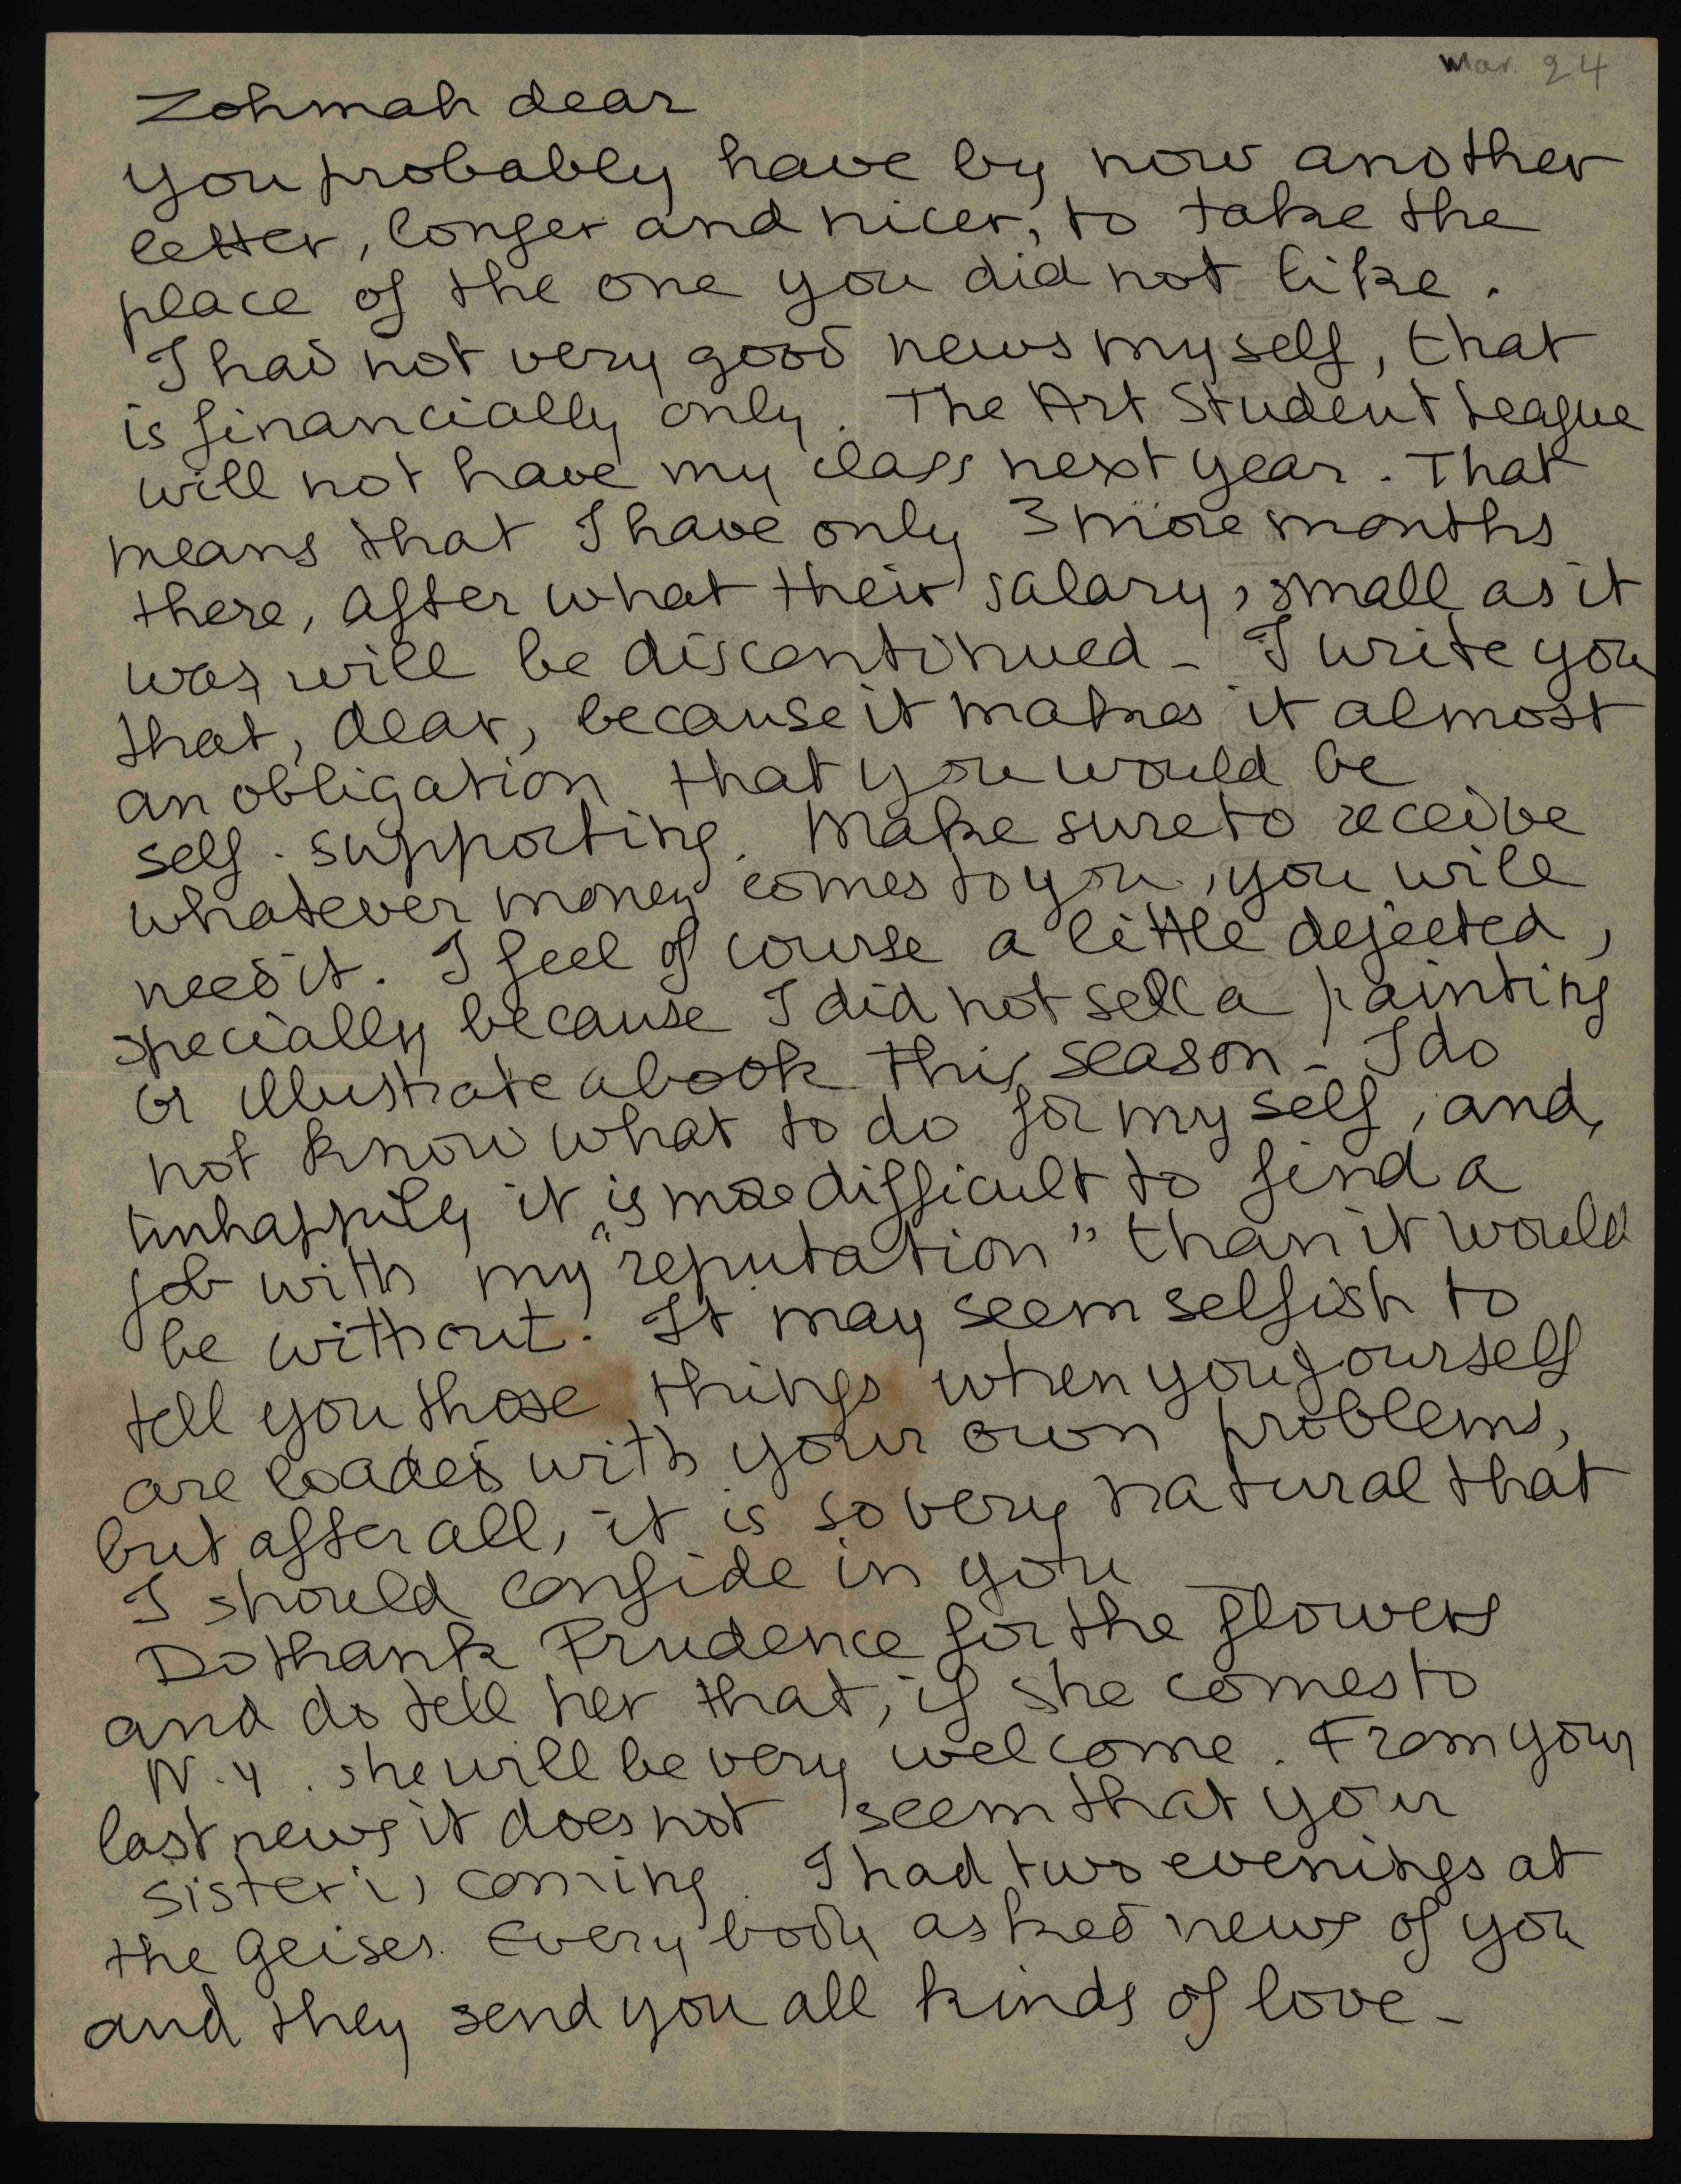 Mar. 24
Zohmah dear
you probably have by now another
letter, longer and nicer, to take the
place of the one you did not like.
I had not very good news myself, that
is financially only. The Art Student League
will not have my class next year. That
means that I have only 3 more months
there, after what their salary, small as it
was, will be discontinued - I write you
that, dear, because it makes it almost
an obligation that you would be
self-supporting. Make sure to receive
whatever money comes to you, you will
need it. I feel of course a little dejected,
specially because I did not sell a painting
or illustrate a book this season - I do
not know what to do for my self, and,
unhappily it is more difficult to find a
job with my "reputation" than it would
be without. It may seem selfish to
tell you those things when you yourself
are loaded with your own problems,
but after all, it is so very natural that
I should confide in you
Do thank Prudence for the flowers
and do tell her that, if she comes to
N.Y. she will be very welcome. From your
last news it does not seem that your
sister is coming. I had two evenings at
the Geises. Every body asked news of you
and they send you all kinds of love -